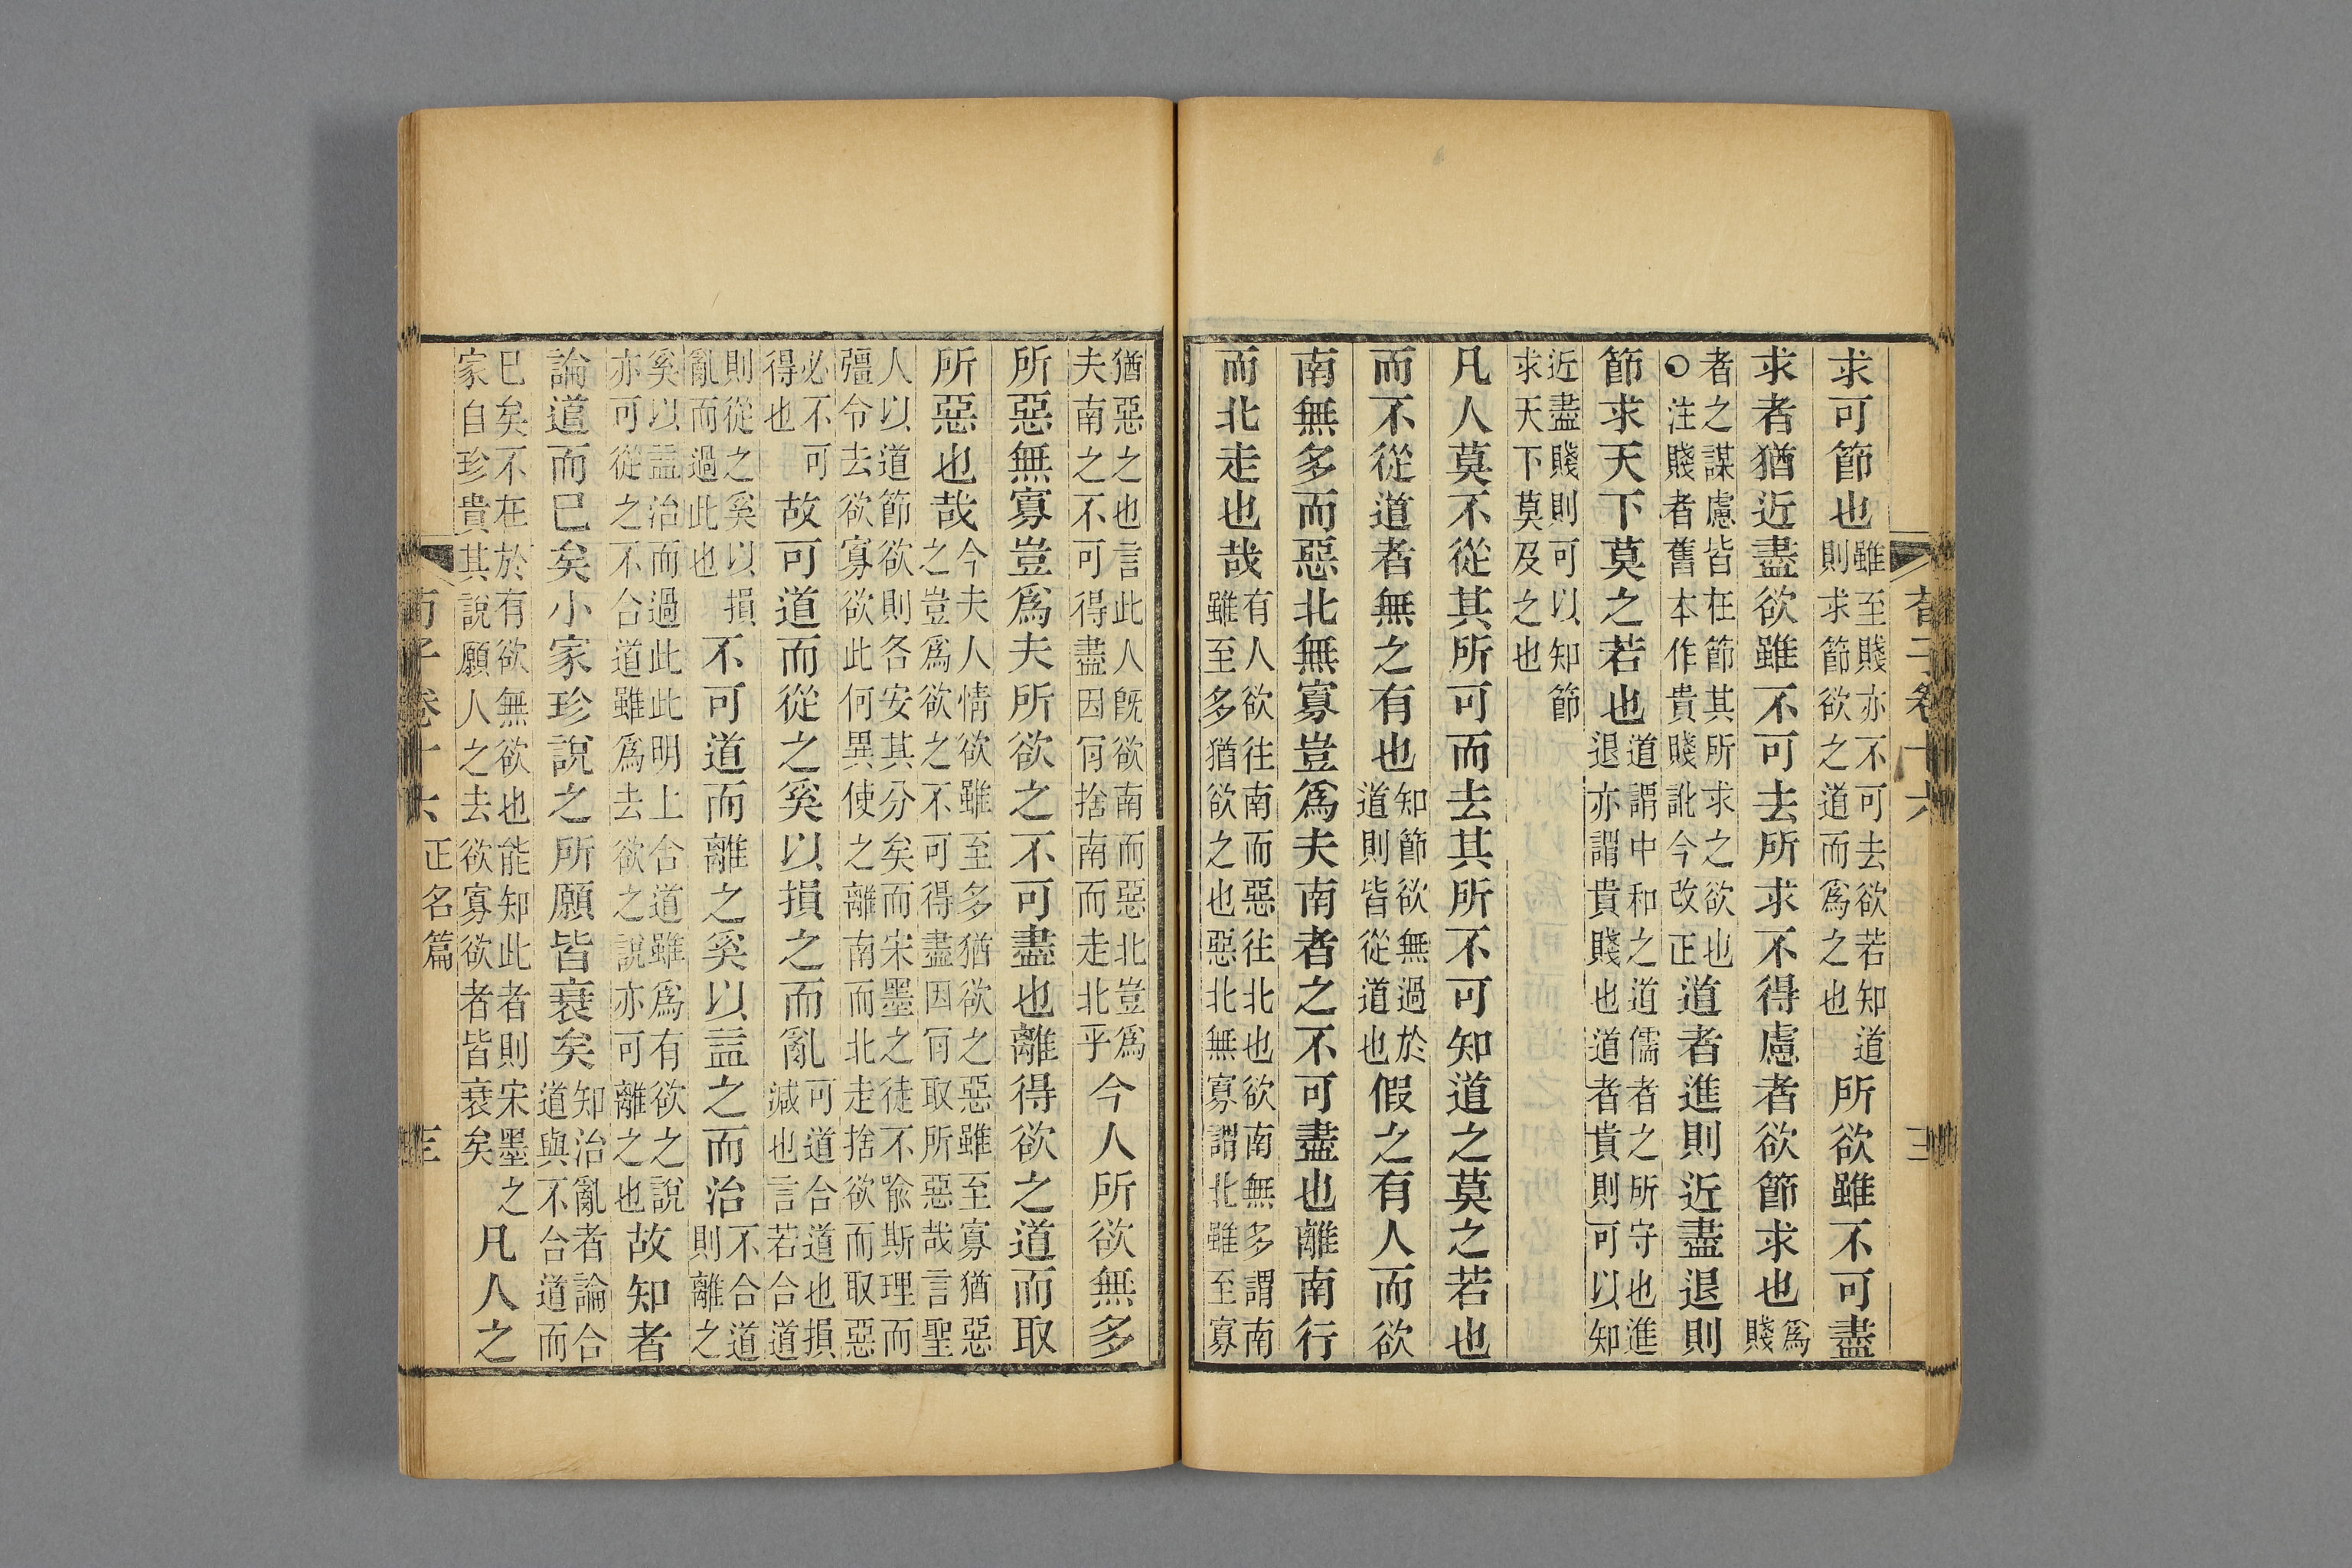 荀子卷十六
求可節也雖至賤亦不可去欲若知道則求節欲之道而爲之也所欲雖不可盡
求者猶近盡欲雖不可去所求不得慮者欲節求也爲賤
者之謀慮皆在節其所求之欲也〇注賤者舊本作貴賤訛今改正道者進則近盡退則
節求天下莫之若也道謂中和之道儒者之所守也進退亦謂貴賤也道者貴則可以知
近盡賤則可以知節求天下莫及之也
凡人莫不從其所可而去其所不可知道之莫之若也
而不從道者無之有也知節欲無過於道則皆從道也假之有人而欲
南無多而惡北無寡豈爲夫南者之不可盡也離南行
而北走也哉有人欲往南而惡往北也欲南無多謂南雖至多猶欲之也惡北無寡謂北雖至寡
猶惡之也言此人旣欲南而惡北豈爲夫南之不可得盡因肎捨南而走北乎今人所欲無多
所惡無寡豈爲夫所欲之不可盡也離得欲之道而取
所惡也哉今夫人情欲雖至多猶欲之惡雖至寡猶惡之豈爲欲之不可得盡因肎取所惡哉言聖
人以道節欲則各安其分矣而宋墨之徒不喻斯理而彊令去欲寡欲此何異使之離南而北走捨欲而取惡
必不可得也故可道而從之奚以損之而亂可道合道也損減也言若合道
則從之奚以損亂而過此也不可道而離之奚以益之而治不合道則離之
奚以益治而過此此明上合道雖爲有欲之說亦可從之不合道雖爲去欲之說亦可離之也故知者
論道而已矣小家珍說之所願皆衰矣知治亂者論合道與不合道而
已矣不在於有欲無欲也能知此者則宋墨之家自珍貴其說願人之去欲寡欲者皆衰矣凡人之
荀子卷十六 正名篇